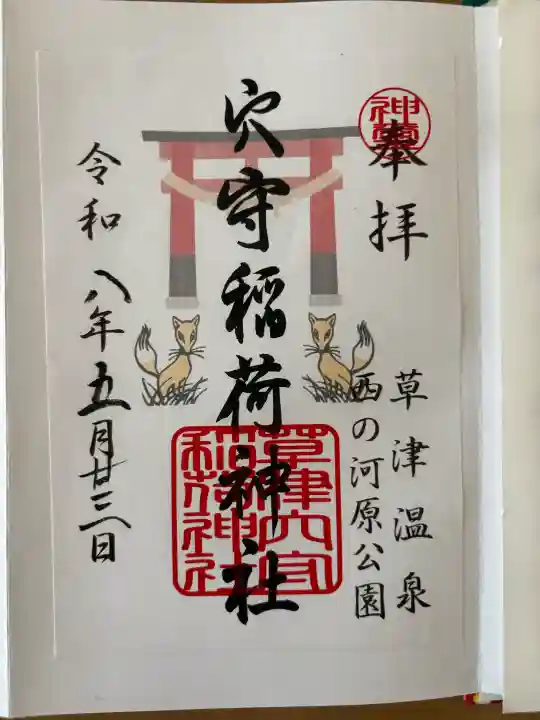 奉拝
草津温泉
西の河原公園
穴守稲荷神社
草津穴守
稲荷神社
令和八年五月廿三日